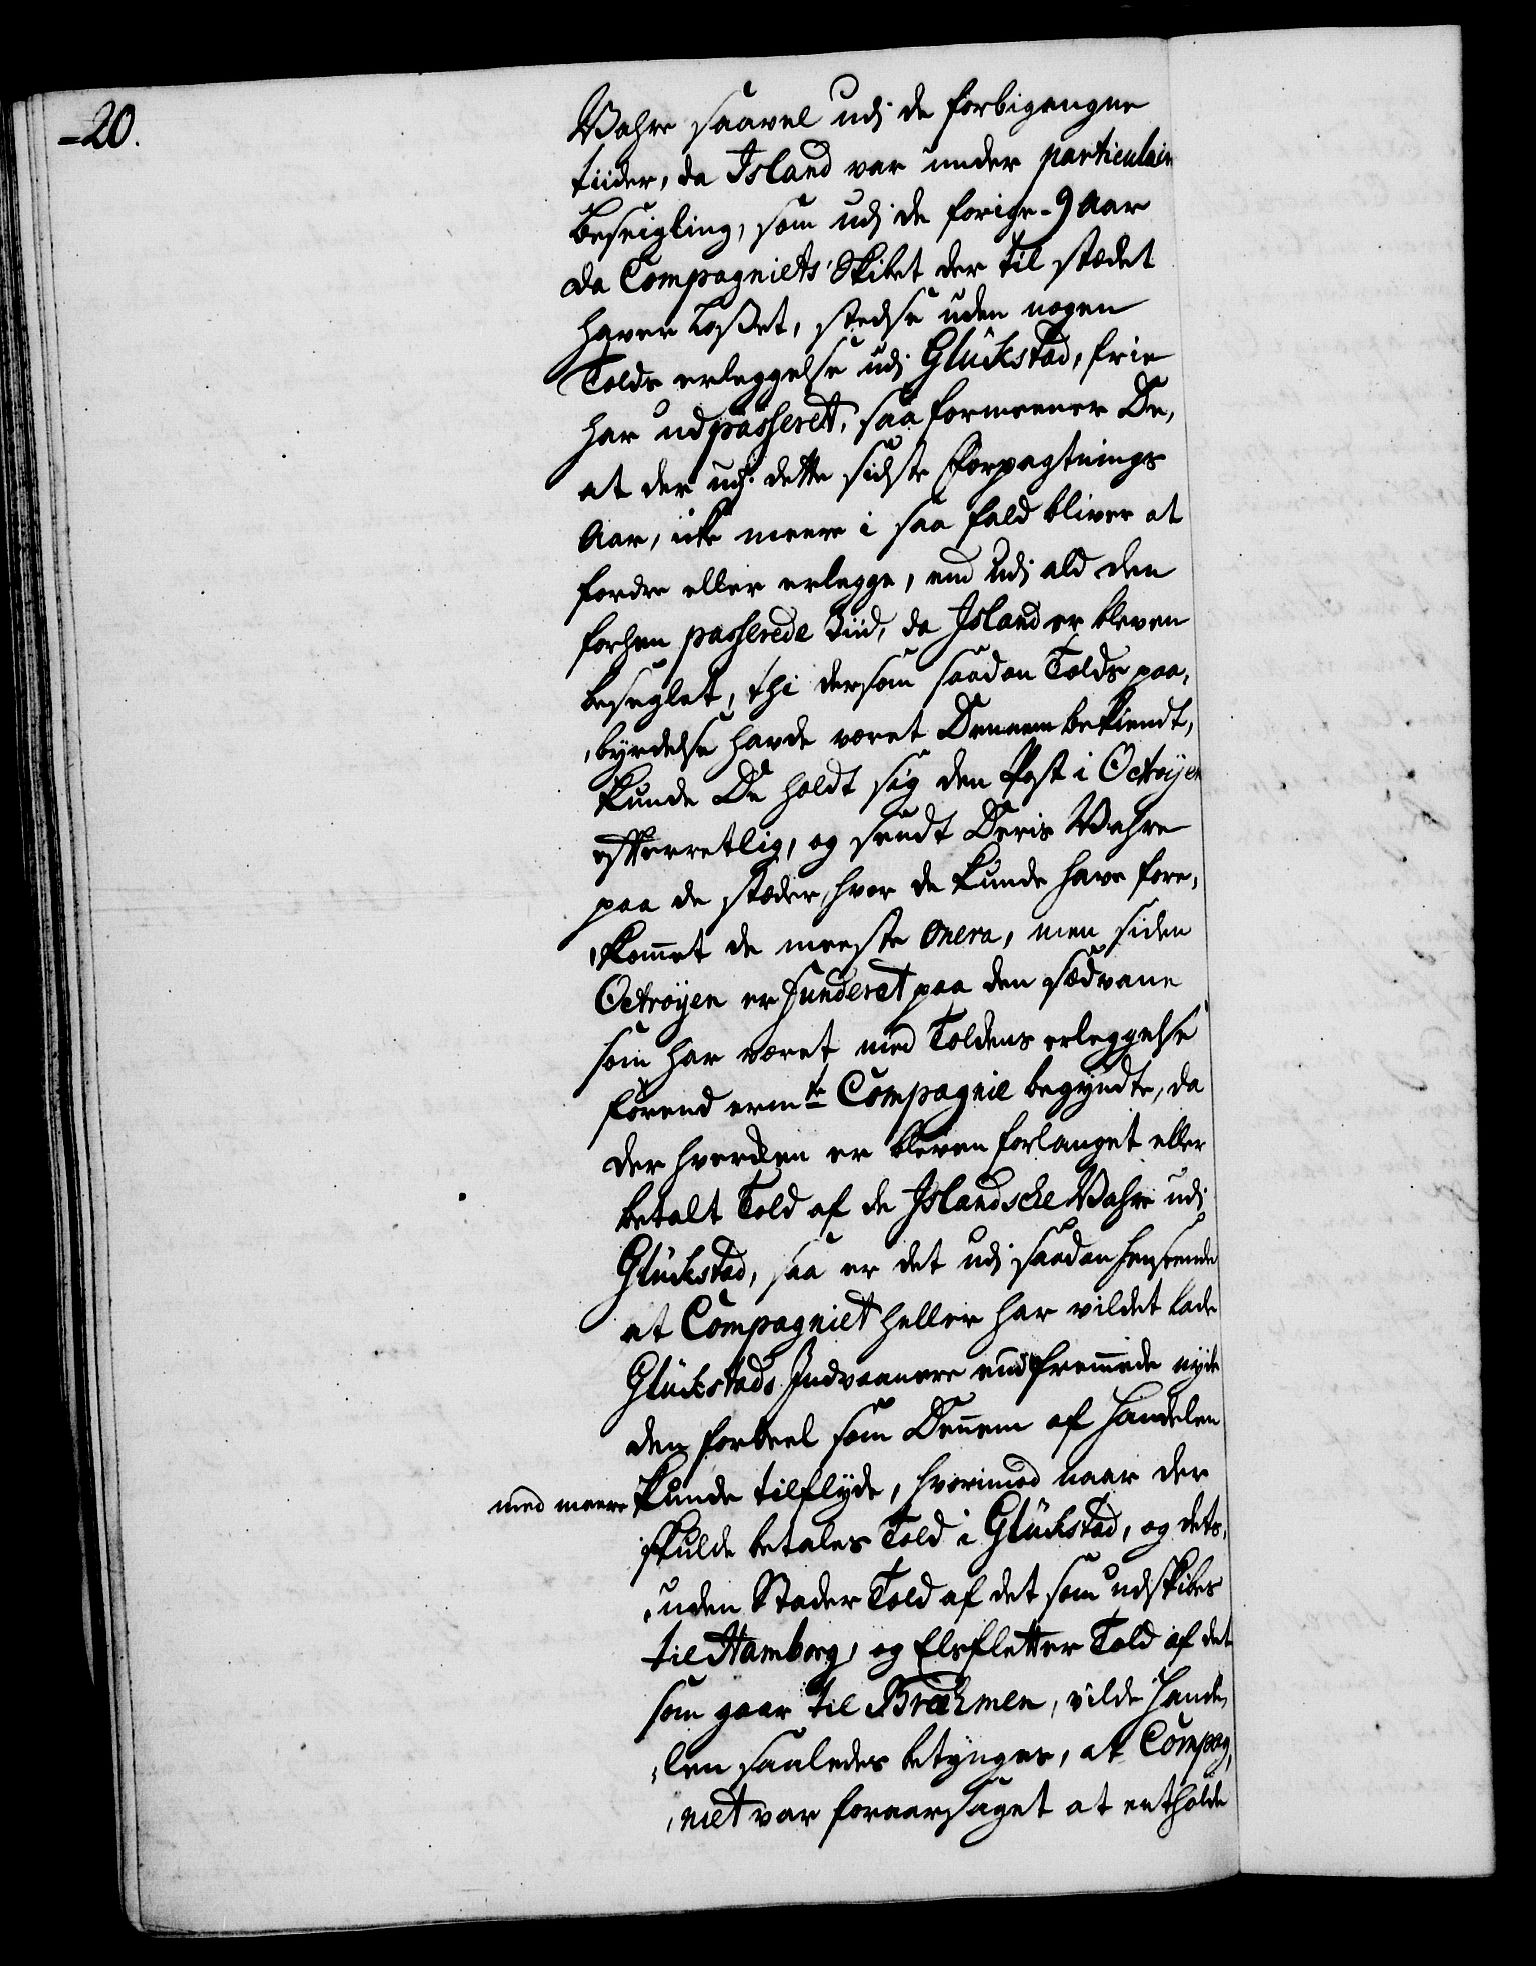 -20.
Wahre saavel udj de forbigangne
tiider, da Island var under particulair
beseigling, som udj de forige 9 Aar
da Compagniets Skibet der til stædet
haver loßet, stedse uden nogen
Tolds erleggelse udj Glückstad, frie
har udpasseret, saa formeener De,
at der udj dette sidste Forpagtnings
Aar, icke meere i saa fald bliver at
fordre eller erlegge, end udj ald den
forhen passerede Tiid, da Island er bleven
beseglet, thi dersom saadan Tolds paa,
,byrdelse havde været Dennem bekiendt,
kunde De holdt sig den Post i Octroyen
efterretlig, og sendt Deris Wahre
paa de stæder, hvor de kunde have fore,
,kom̄et de meeste onera, men siden
Octroyen er funderet paa den sædvane
som har været med Toldens erleggelse
førend ermte Compagnie begyndte, da
der hverken er bleven forlanget eller
betalt Told af de Islandsche Wahre udj
Glückstad, saa er det udj saadan henseende
at Compagniet heller har vildet lade
Glückstads Indvaanere end frem̄ede nyde
den fordeel som Den̄em af Handelen
med meere kunde tilflyde, hvorimod naar der
skulde betales Told i Glückstad, og dets,
,uden Stader Told af det som udskibes
til Hamborg, og Elsfletter Told af det
som gaar til Bræhmen, vilde Hande,
,len saaledes betynges, at Compag,
,niet var foraarsaget at entholde